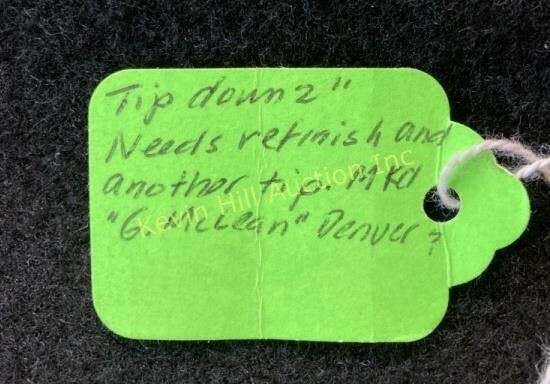 Tip down 2"
Needs refinish and
another tip. Mkd
"G. McLean" Denver?
Kevin Hill Auction, Inc